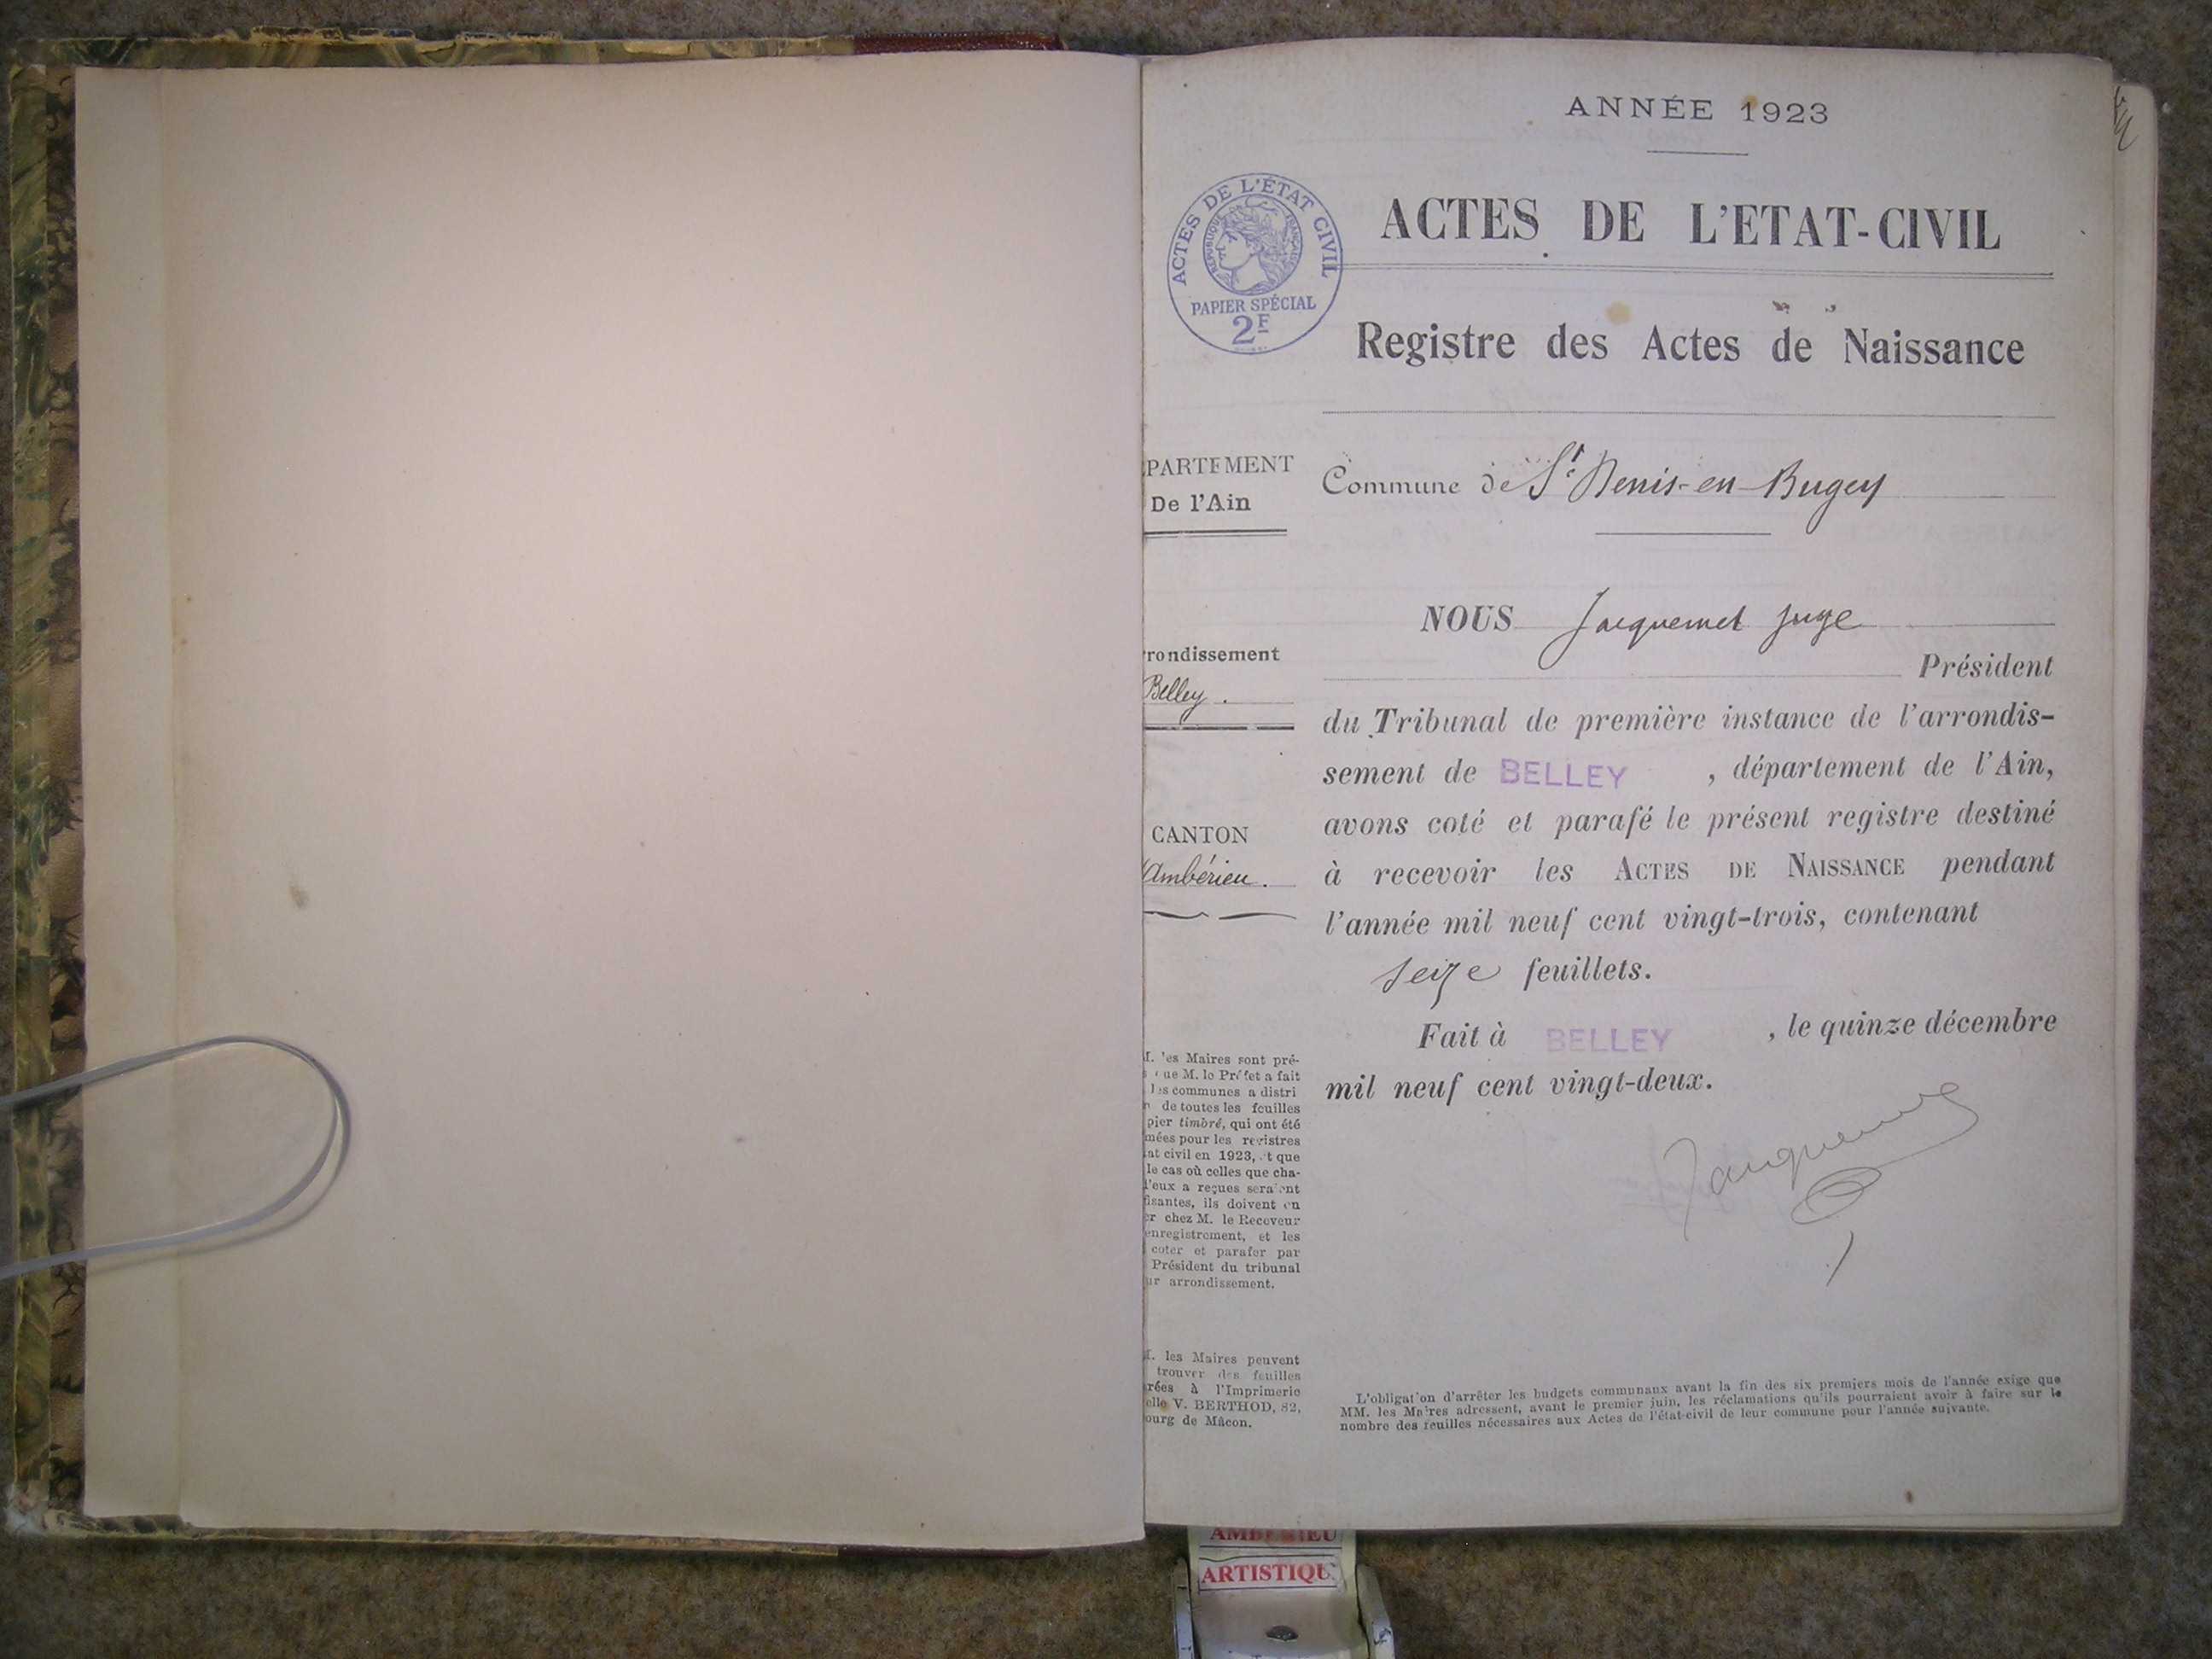 ANNÉE 1923
ACTES DE L'ÉTAT CIVIL
RÉPUBLIQUE FRANÇAISE
PAPIER SPÉCIAL
2F
ACTES DE L'ETAT-CIVIL
Registre des Actes de Naissance
PARTEMENT
De l'Ain
Commune de St. Denis-en-Bugey
rondissement
Belley.
CANTON
Ambérieu.
NOUS Jacquemet juge
Président
du Tribunal de première instance de l'arrondis-
sement de BELLEY , département de l'Ain,
avons coté et parafé le présent registre destiné
à recevoir les ACTES DE NAISSANCE pendant
l'année mil neuf cent vingt-trois, contenant
seize feuillets.
Fait à BELLEY , le quinze décembre
mil neuf cent vingt-deux.
Jacquemet
M. les Maires sont pré-
que M. le Préfet a fait
les communes a distri
de toutes les feuilles
pier timbré, qui ont été
mées pour les registres
at civil en 1923, et que
le cas où celles que cha-
d'eux a reçues seraient
fisantes, ils doivent en
er chez M. le Receveur
enregistrement, et les
coter et parafer par
Président du tribunal
ur arrondissement.
M. les Maires peuvent
trouver des feuilles
rées à l'Imprimerie
elle V. BERTHOD, 82,
ourg de Mâcon.
L'obligation d'arrêter les budgets communaux avant la fin des six premiers mois de l'année exige que
MM. les Maires adressent, avant le premier juin, les réclamations qu'ils pourraient avoir à faire sur le
nombre des feuilles nécessaires aux Actes de l'état-civil de leur commune pour l'année suivante.
AMBERIEU
ARTISTIQU